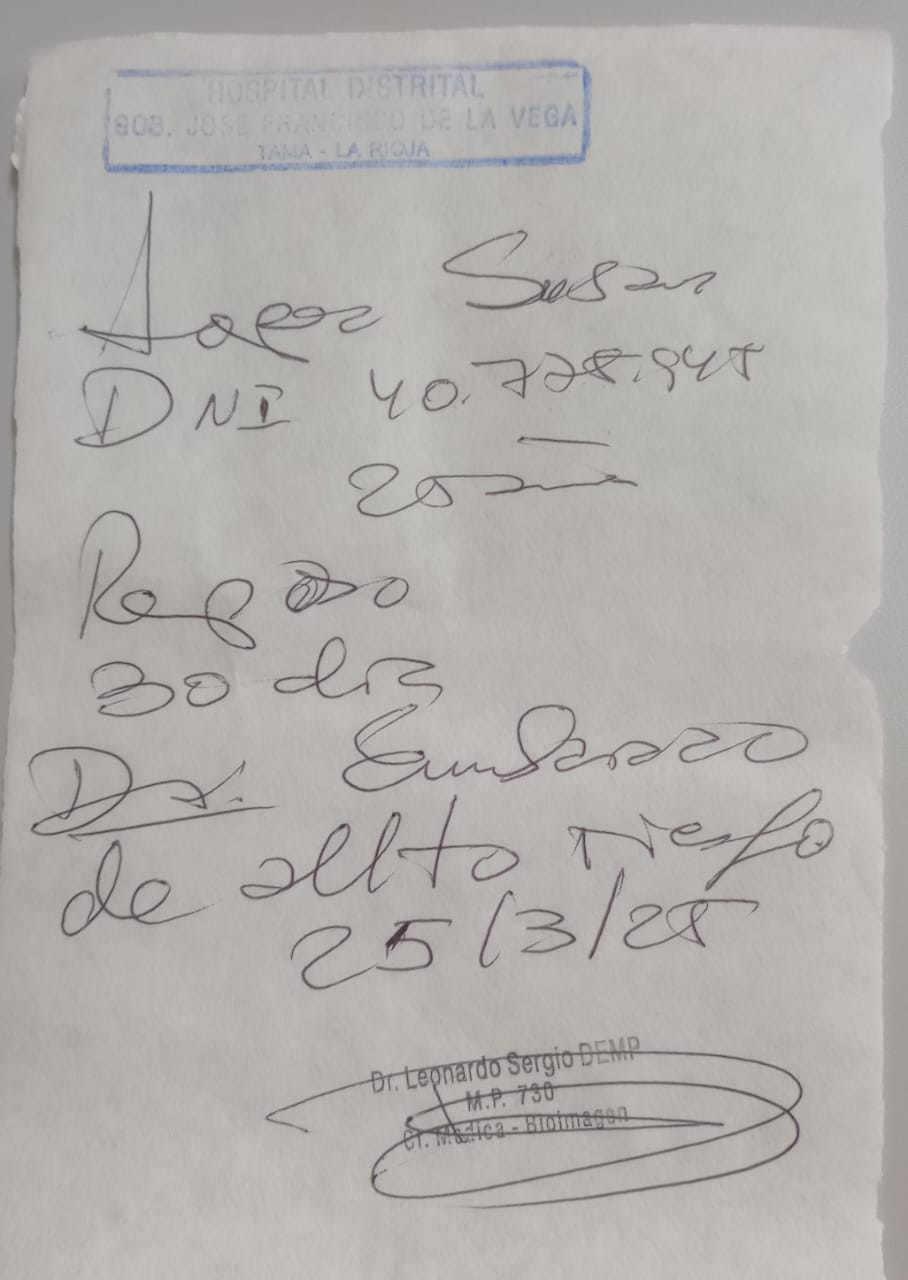 HOSPITAL DISTRITAL
GOB. JOSE FRANCISCO DE LA VEGA
TAMA - LA RIOJA
Lopez Susan
DNI 40.728.945
Reposo
30 dias
Dx. Embarazo
de allto riesgo
25/3/25
Dr. Leonardo Sergio DEMP
M.P. 730
Cl. Médica - Bioimagen